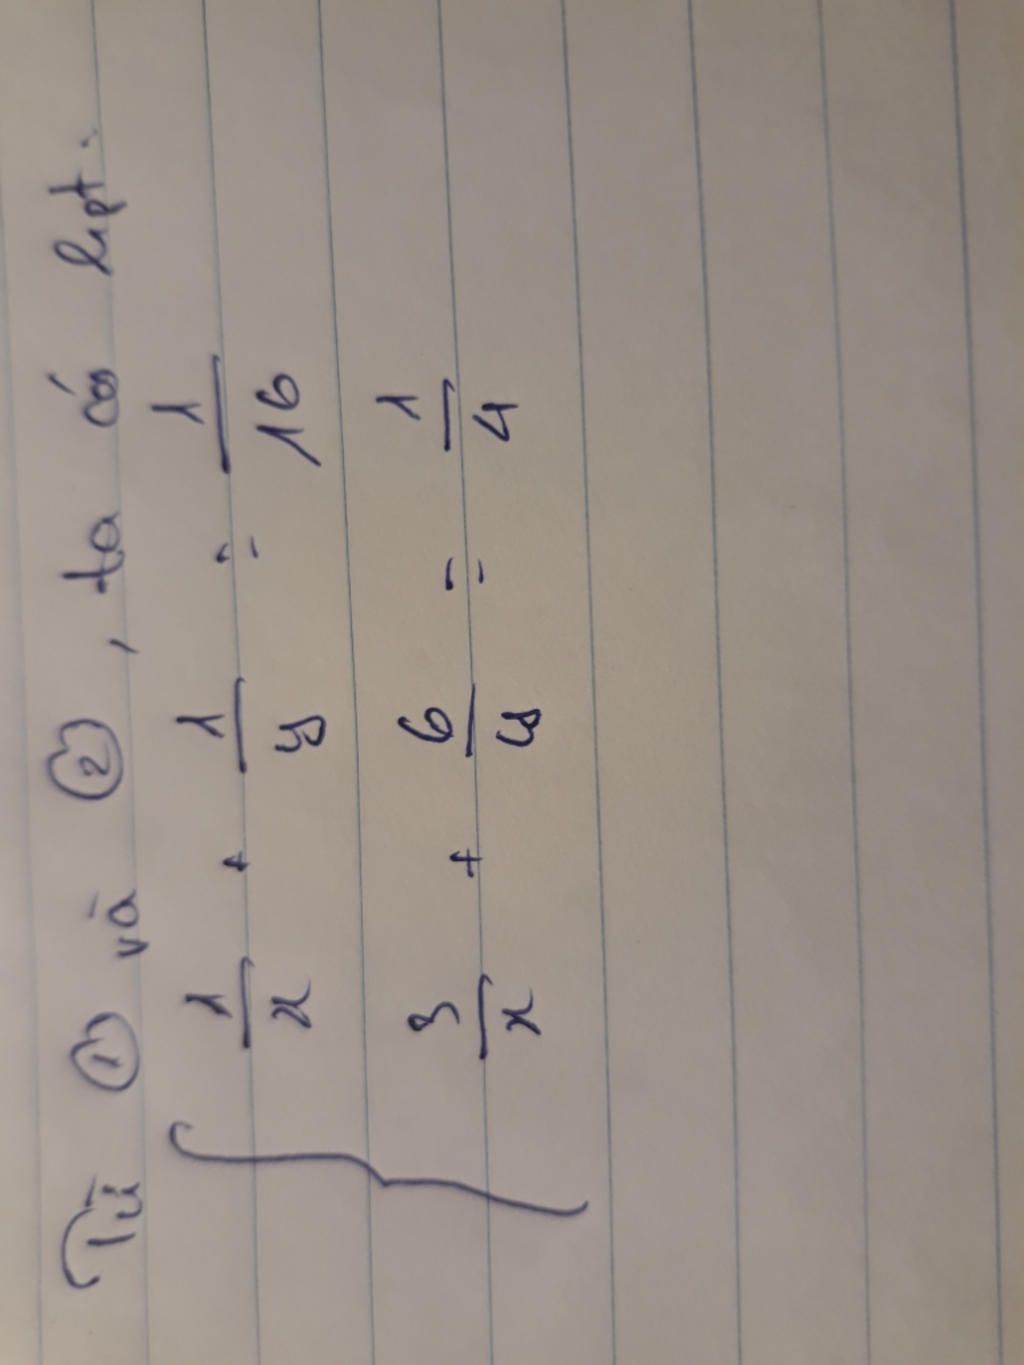 Từ ① và ②, ta có hpt:
{ 1/x + 1/y = 1/16
3/x + 6/y = 1/4